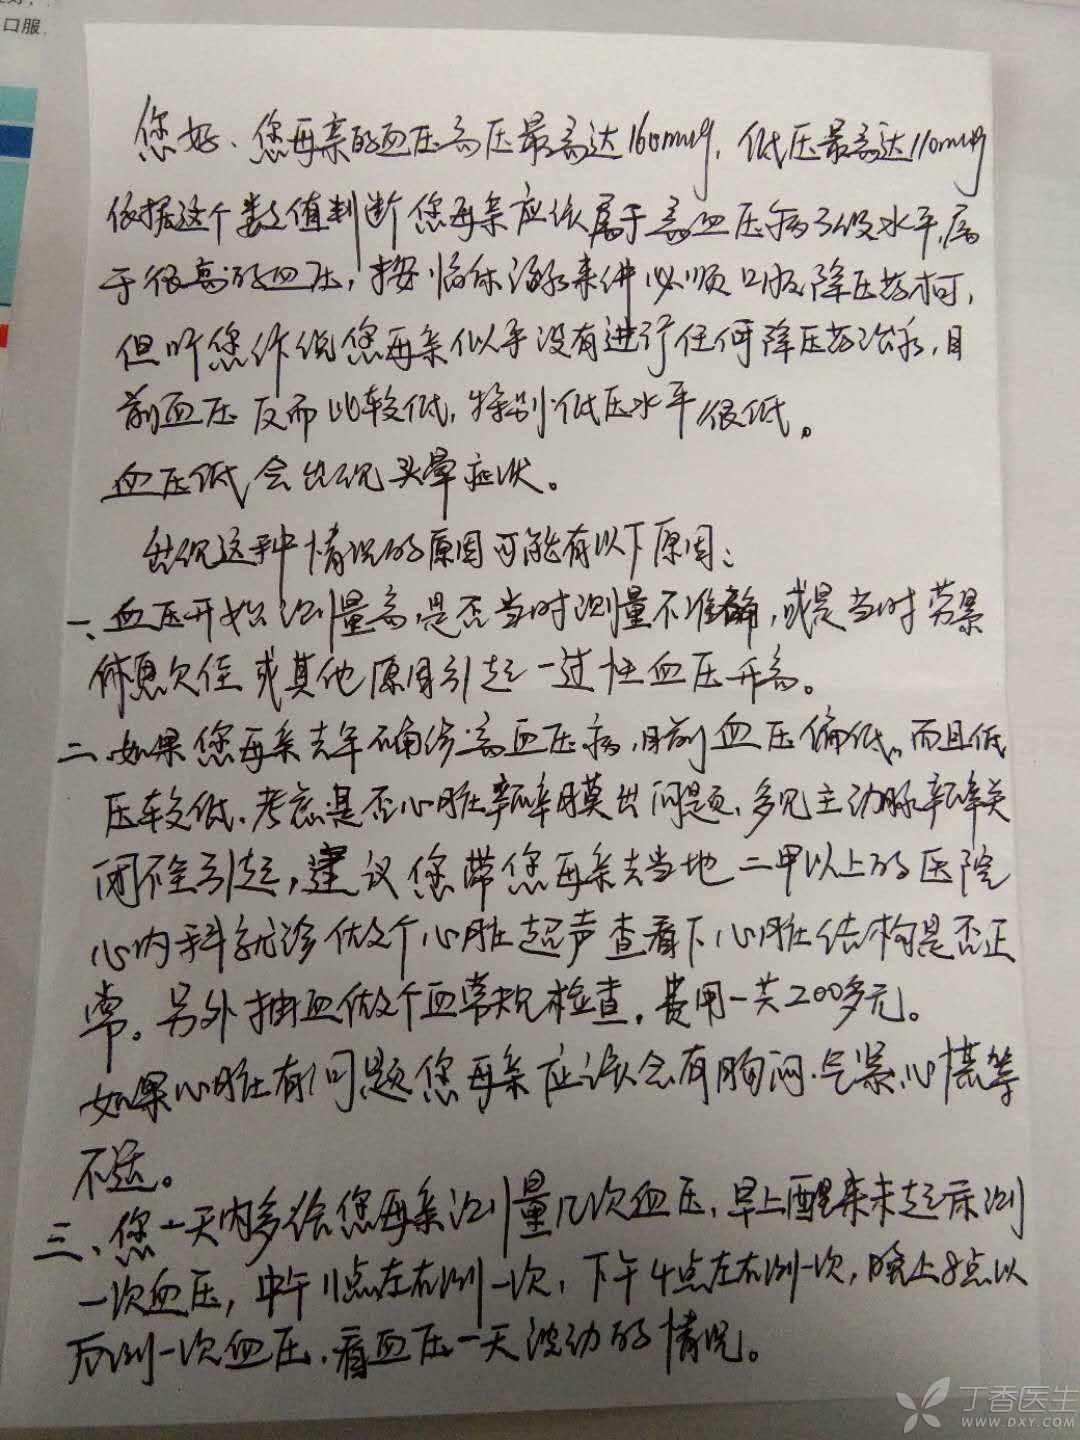 口服.
您好、您母亲的血压高压最高达160mmHg, 低压最高达110mmHg
依据这个数值判断您母亲应该属于高血压病3级水平,属
于很高的血压, 按临床治疗来讲必须口服降压药才可,
但听您诉说您母亲似乎没有进行任何降压药治疗,目
前血压反而比较低,特别低压水平很低。
血压低会出现头晕症状。
出现这种情况的原因可能有以下原因:
一、血压开始测量高,是否当时测量不准确,或是当时劳累
休息欠佳或其他原因引起一过性血压升高。
二、如果您母亲去年确诊高血压病,目前血压偏低,而且低
压较低.考虑是否心脏瓣膜出问题,多见主动脉瓣关
闭不全引起,建议您带您母亲去当地二甲以上的医院
心内科就诊做个心脏超声查看下心脏结构是否正
常。另外抽血做个血常规检查,费用一共200多元。
如果心脏有问题您母亲应该会有胸闷.气紧.心慌等
不适。
三、您一天内多给您母亲测量几次血压,早上醒来未起床测
一次血压,中午11点左右测一次,下午4点左右测一次,晚上8点以
后测一次血压.看血压一天波动的情况。
丁香医生
WWW.DXY.COM